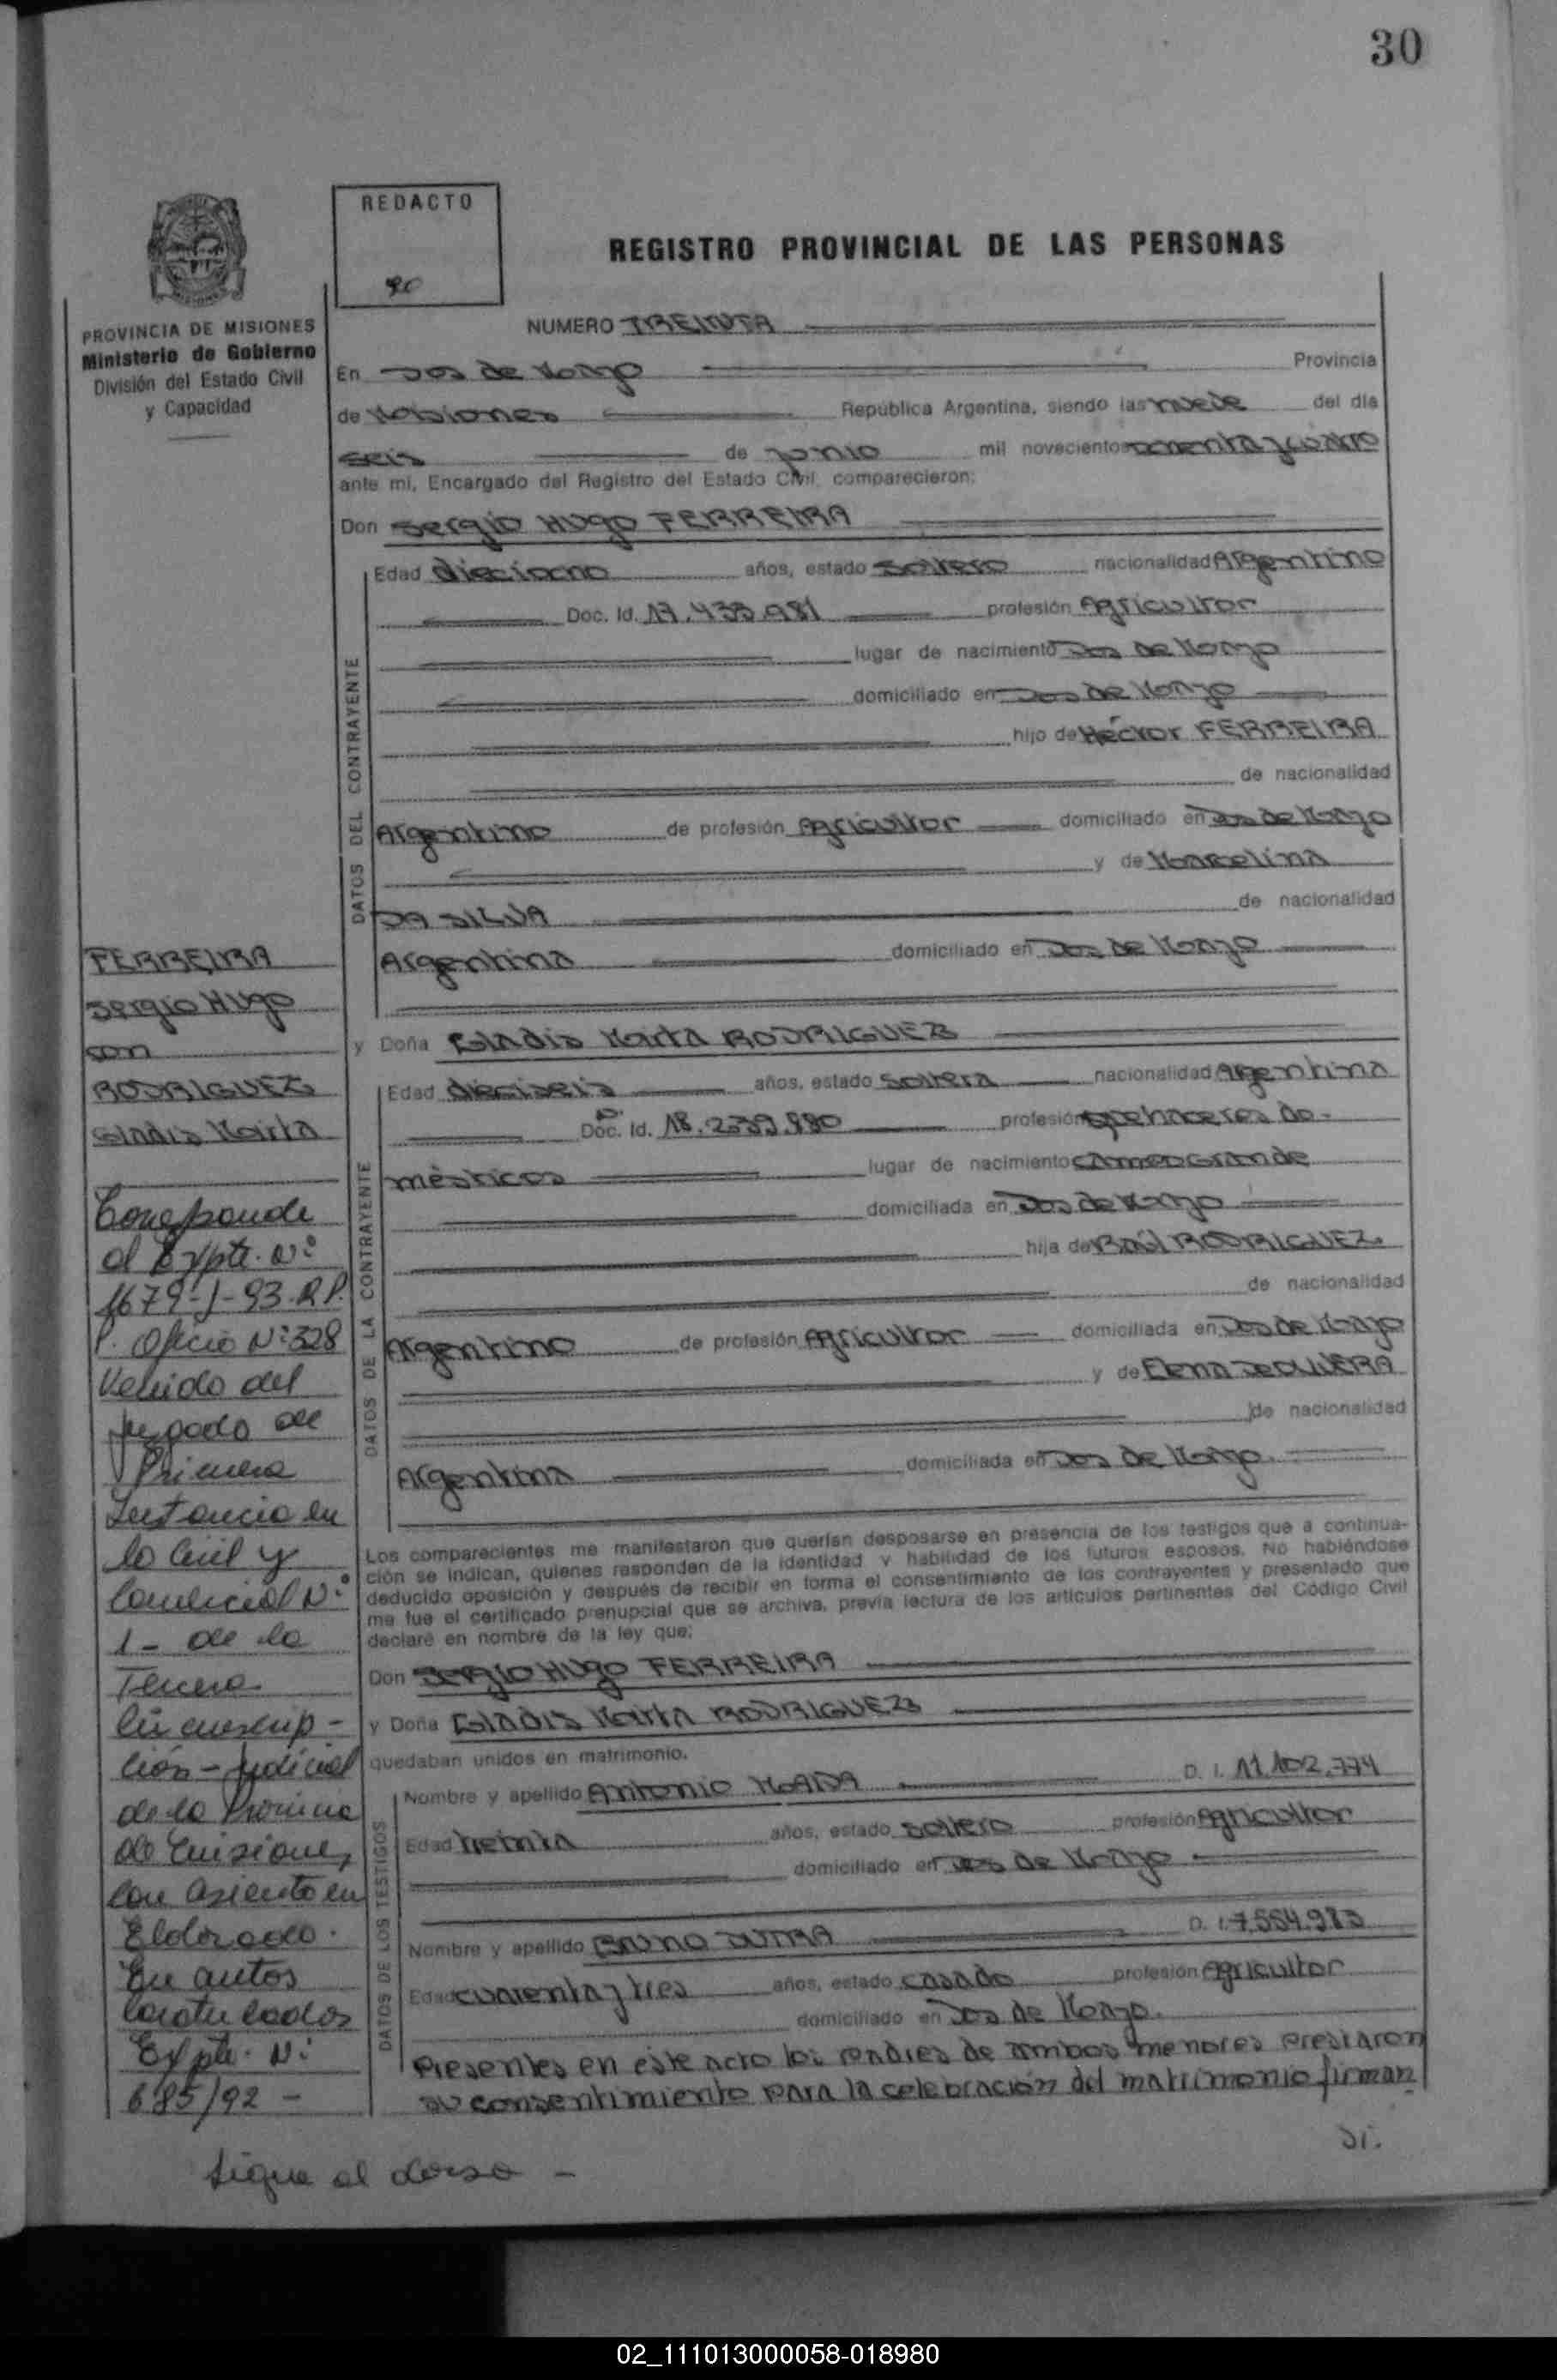 30
REDACTO
REGISTRO PROVINCIAL DE LAS PERSONAS
PROVINCIA DE MISIONES
Ministerio de Gobierno
División del Estado Civil
y Capacidad
NUMERO TREINTA
En Dos de Mayo Provincia
de Misiones República Argentina, siendo las nueve del día
seis de junio mil novecientos ochenta y cuatro
ante mí, Encargado del Registro del Estado Civil, comparecieron:
Don Sergio Hugo FERREIRA
DATOS DEL CONTRAYENTE
Edad dieciocho años, estado soltero nacionalidad Argentino
Doc. Id. profesión Agricultor
lugar de nacimiento Dos de Mayo
domiciliado en Dos de Mayo
hijo de Héctor FERREIRA
de nacionalidad
Argentino de profesión Agricultor domiciliado en Dos de Mayo
y de Marcelina
DA SILVA de nacionalidad
Argentina domiciliado en Dos de Mayo
y Doña Gladis Marta RODRIGUEZ
DATOS DE LA CONTRAYENTE
Edad dieciseis años, estado soltera nacionalidad Argentina
Doc. Id. 18.239.980 profesión quehaceres do-
mésticos lugar de nacimiento CAMPO Grande
domiciliada en Dos de Mayo
hija de Raúl RODRIGUEZ
de nacionalidad
Argentino de profesión Agricultor domiciliada en Dos de Mayo
y de Elena DE OLIVERA
de nacionalidad
Argentina domiciliada en Dos de Mayo
Los comparecientes me manifestaron que querían desposarse en presencia de los testigos que a continua-
ción se indican, quienes responden de la identidad y habilidad de los futuros esposos. No habiéndose
deducido oposición y después de recibir en forma el consentimiento de los contrayentes y presentado que
me fue el certificado prenupcial que se archiva, previa lectura de los artículos pertinentes del Código Civil
declaré en nombre de la ley que:
Don Sergio Hugo FERREIRA
y Doña Gladis Marta RODRIGUEZ
quedaban unidos en matrimonio.
DATOS DE LOS TESTIGOS
Nombre y apellido Antonio D. I. 11.102.774
Edad treinta años, estado soltero profesión Agricultor
domiciliado en Dos de Mayo
Nombre y apellido Bruno DUTRA D. I. 7.554.983
Edad cuarenta y tres años, estado casado profesión Agricultor
domiciliado en Dos de Mayo.
Presentes en este acto los padres de ambos menores prestaron
su consentimiento para la celebración del matrimonio firman
FERREIRA
Sergio Hugo
con
RODRIGUEZ
Gladis Marta
Corresponde
al Expte. Nº
1679-J-93-R.P.
P. Oficio Nº 328
Venido del
Juzgado de
Primera
Instancia en
lo Civil y
Comercial Nº
1- de la
Tercera
Circunscrip-
ción-Judicial
de la Provincia
de Misiones,
con asiento en
Eldorado.
En autos
Caratulados
Expte. Nº
685/92 -
Sigue al dorso -
02_111013000058-018980